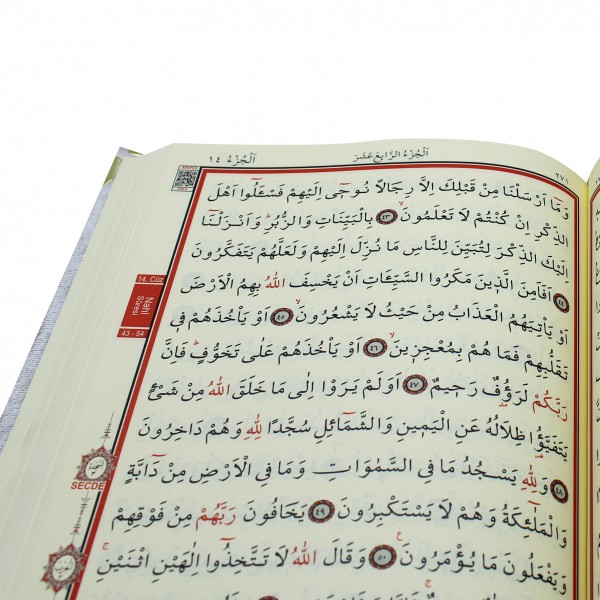 اَلْجُزْءُ ١٤
اَلْجُزْءُ الرَّابِعَ عَشَرَ
٢٧١
وَمَٓا اَرْسَلْنَا مِنْ قَبْلِكَ اِلَّا رِجَالًا نُوح۪ٓى اِلَيْهِمْ فَسْـَٔلُٓوا اَهْلَ
الذِّكْرِ اِنْ كُنْتُمْ لَا تَعْلَمُونَۙ ﴿٤٣﴾ بِالْبَيِّنَاتِ وَالزُّبُرِۜ وَاَنْزَلْنَٓا
اِلَيْكَ الذِّكْرَ لِتُبَيِّنَ لِلنَّاسِ مَا نُزِّلَ اِلَيْهِمْ وَلَعَلَّهُمْ يَتَفَكَّرُونَ
﴿٤٤﴾ اَفَاَمِنَ الَّذ۪ينَ مَكَرُوا السَّيِّـَٔاتِ اَنْ يَخْسِفَ اللّٰهُ بِهِمُ الْاَرْضَ
اَوْ يَأْتِيَهُمُ الْعَذَابُ مِنْ حَيْثُ لَا يَشْعُرُونَۙ ﴿٤٥﴾ اَوْ يَأْخُذَهُمْ ف۪ي
تَقَلُّبِهِمْ فَمَا هُمْ بِمُعْجِز۪ينَۙ ﴿٤٦﴾ اَوْ يَأْخُذَهُمْ عَلٰى تَخَوُّفٍۜ فَاِنَّ
رَبَّكُمْ لَرَؤُ۫فٌ رَح۪يمٌ ﴿٤٧﴾ اَوَلَمْ يَرَوْا اِلٰى مَا خَلَقَ اللّٰهُ مِنْ شَيْءٍ
يَتَفَيَّؤُ۬ا ظِلَالُهُ عَنِ الْيَم۪ينِ وَالشَّمَٓائِلِ سُجَّدًا لِلّٰهِ وَهُمْ دَاخِرُونَ
﴿٤٨﴾ وَلِلّٰهِ يَسْجُدُ مَا فِي السَّمٰوَاتِ وَمَا فِي الْاَرْضِ مِنْ دَٓابَّةٍ
وَالْمَلٰٓئِكَةُ وَهُمْ لَا يَسْتَكْبِرُونَ ﴿٤٩﴾ يَخَافُونَ رَبَّهُمْ مِنْ فَوْقِهِمْ
وَيَفْعَلُونَ مَا يُؤْمَرُونَ ﴿٥٠﴾ وَقَالَ اللّٰهُ لَا تَتَّخِذُٓوا اِلٰهَيْنِ اثْنَيْنِۚ
14. Cüz
Nahl
Sûresi
43 - 54
SECDE